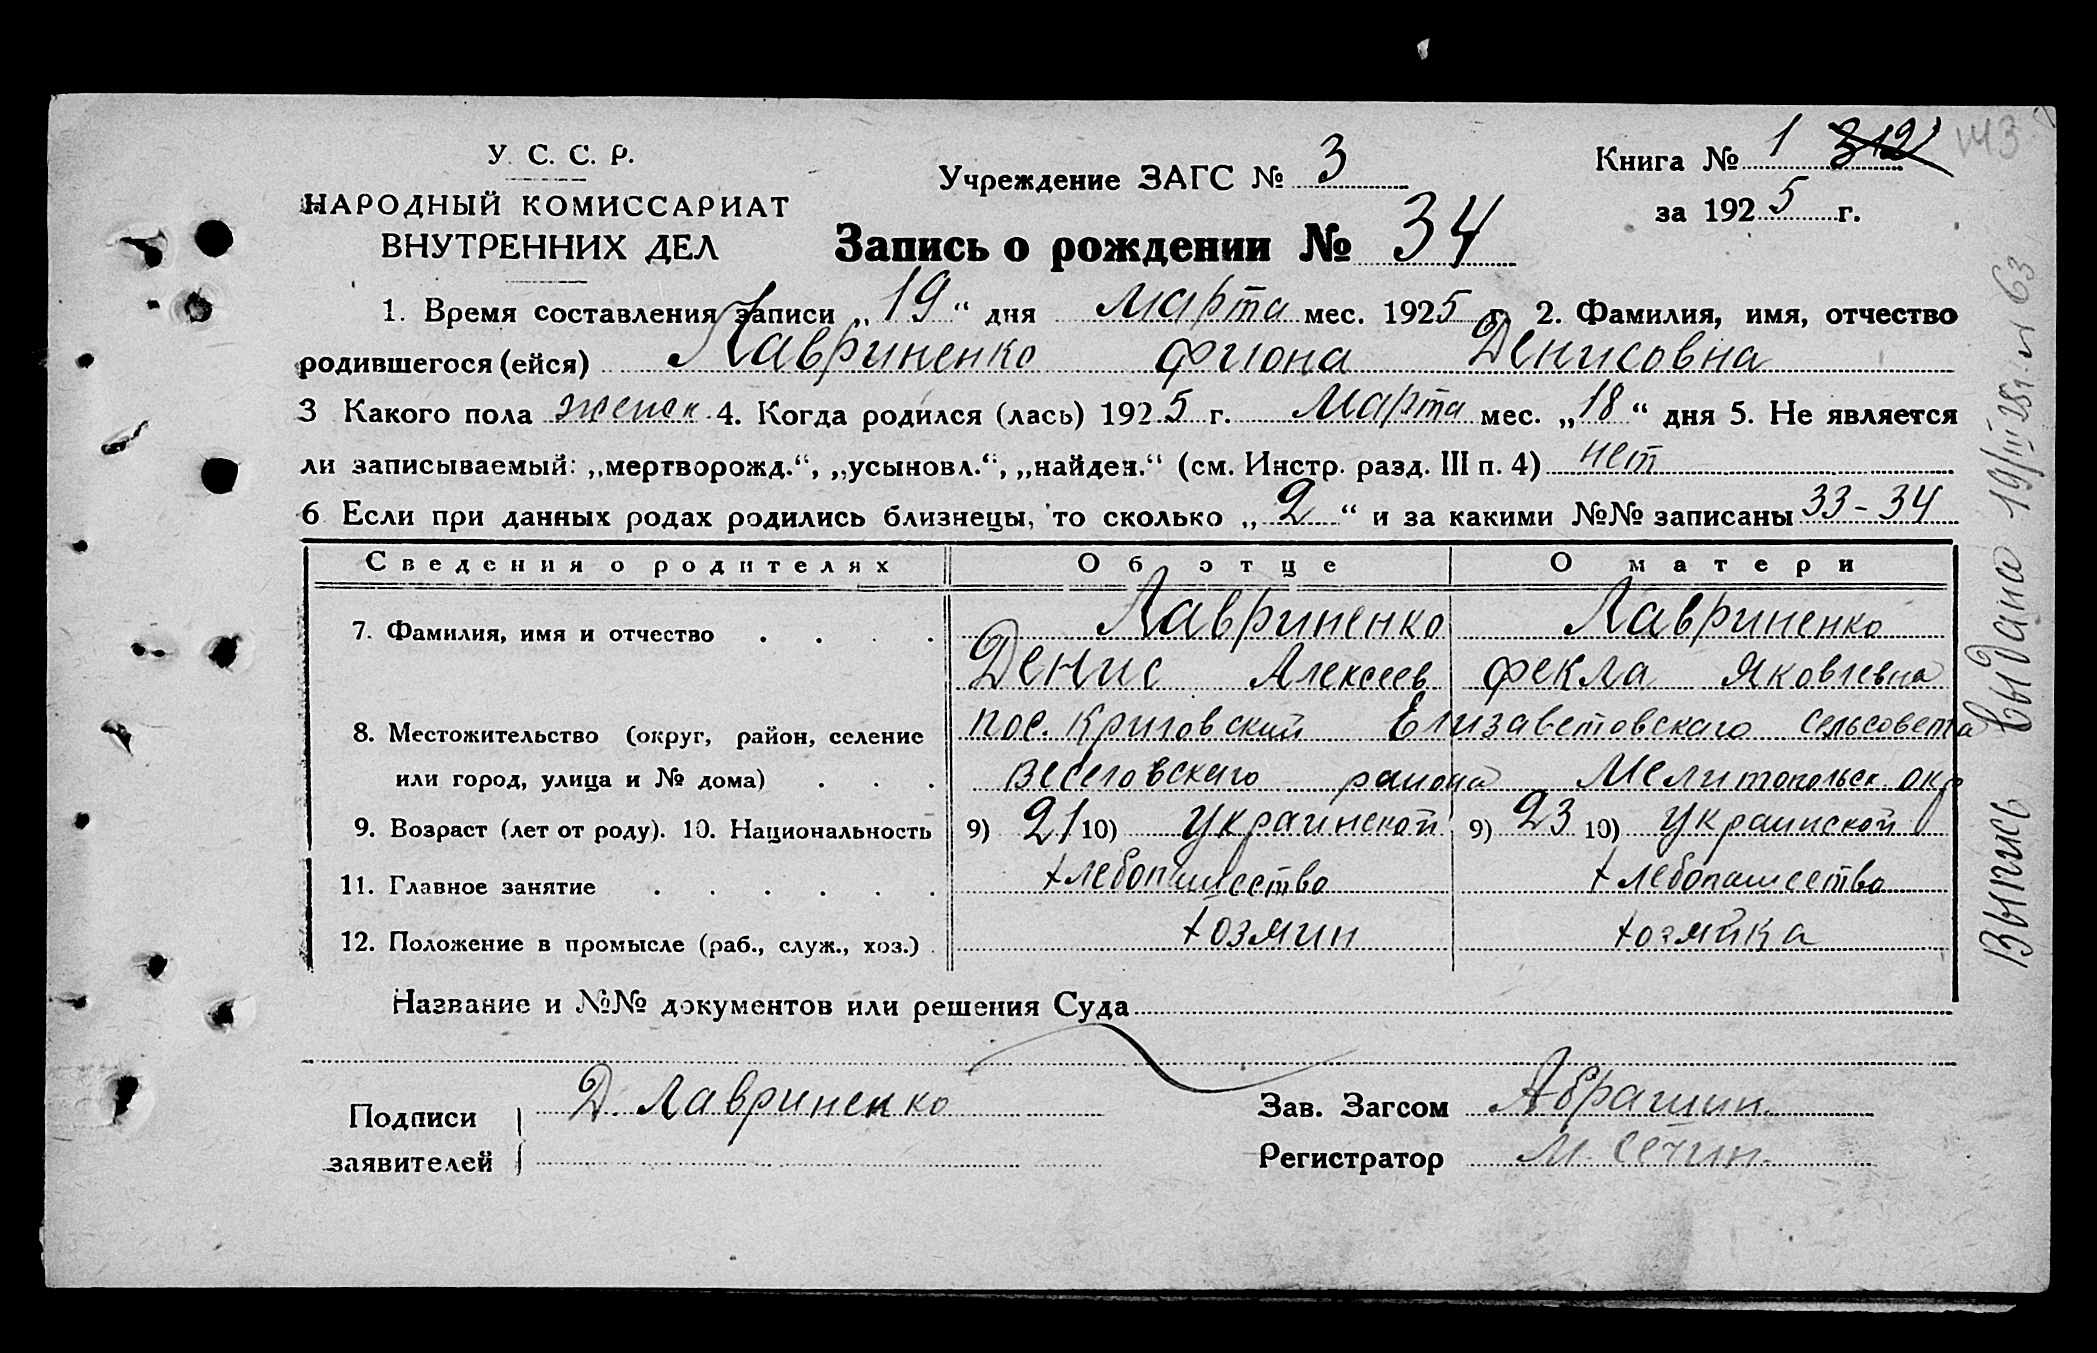 У. С. С. Р.
НАРОДНЫЙ КОМИССАРИАТ
ВНУТРЕННИХ ДЕЛ
Учреждение ЗАГС № 3
Книга № 1 312 143
за 1925 г.
Запись о рождении № 34
1. Время составления записи „19“ дня марта мес. 1925 г. 2. Фамилия, имя, отчество
родившегося (ейся) Лавриненко Фиона Денисовна
3 Какого пола женск. 4. Когда родился (лась) 1925 г. Марта мес. „18“ дня 5. Не является
ли записываемый: „мертворожд.“, „усыновл.“, „найден.“ (см. Инстр. разд. III п. 4) нет
6 Если при данных родах родились близнецы, то сколько „2“ и за какими №№ записаны 33-34
Сведения о родителях Об отце О матери
7. Фамилия, имя и отчество Лавриненко Лавриненко
Денис Алексеев Фекла Яковлевна
8. Местожительство (округ, район, селение пос. Елизаветовскаго сельсовета
или город, улица и № дома) Веселовскаго района Мелитопольск. окр
9. Возраст (лет от роду). 10. Национальность 9) 21 10) Украинской 9) 23 10) Украинской
11. Главное занятие хлебопашество хлебопашество
12. Положение в промысле (раб., служ., хоз.) хозяин хозяйка
Название и №№ документов или решения Суда
Подписи
заявителей
Д. Лавриненко
Зав. Загсом Абрашин
Регистратор М. Сечин
Выпись выдана 19/III 25г. № 63